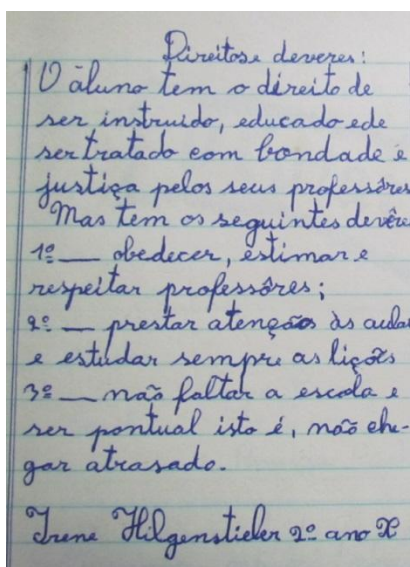 Direitos e deveres:
O aluno tem o direito de
ser instruido, educado e de
ser tratado com bondade e
justiça pelos seus professôres
Mas tem os seguintes devêre
1º — obedecer, estimar e
respeitar professôres;
2º — prestar atenção às aulas
e estudar sempre as lições
3º — não faltar a escola e
ser pontual isto é, não che-
gar atrasado.
Irene Hilgenstieler 2º ano